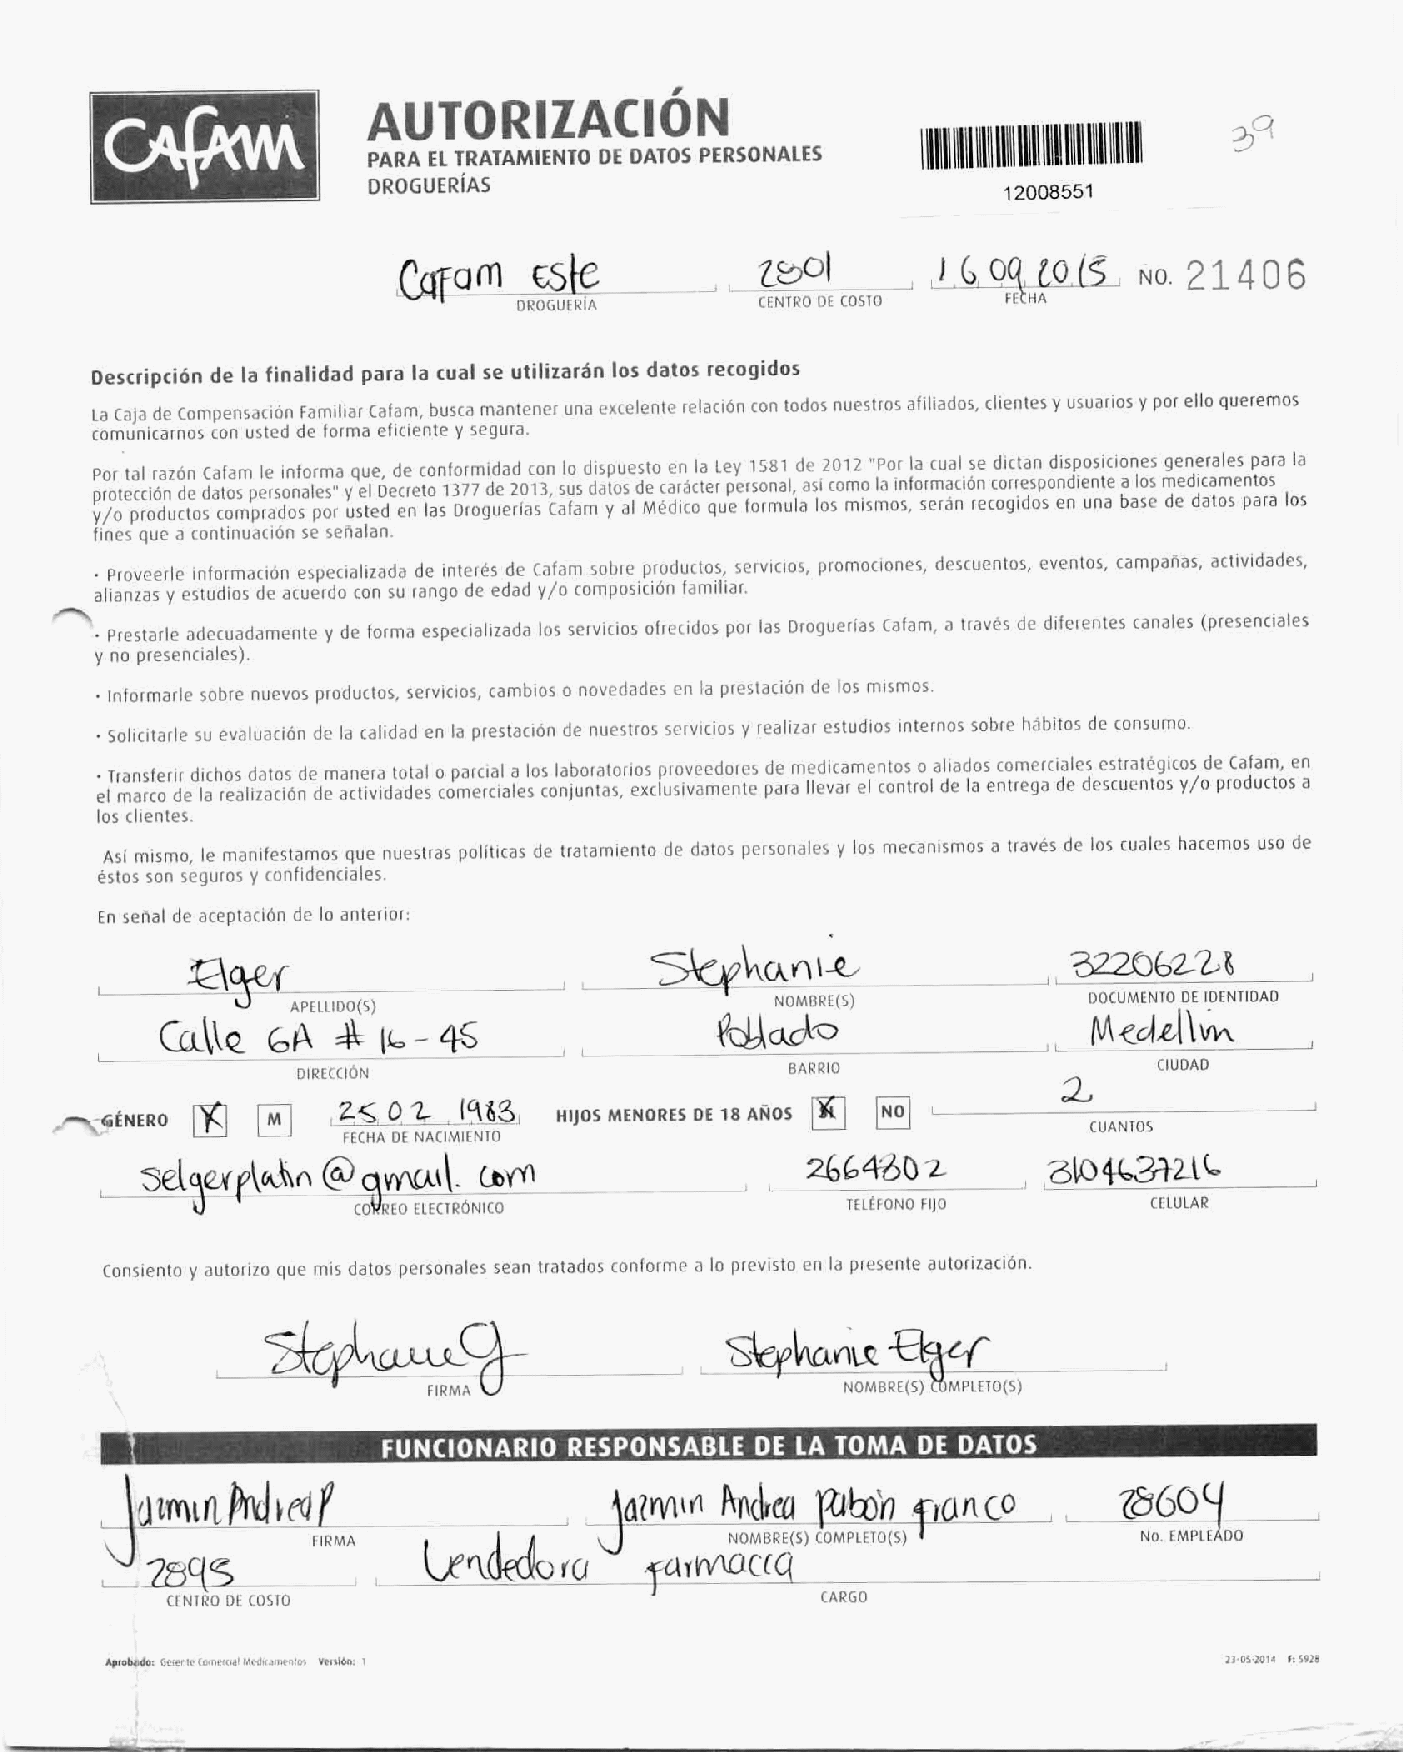 CAFAM
AUTORIZACIÓN
PARA EL TRATAMIENTO DE DATOS PERSONALES
DROGUERÍAS
12008551
39
Cafam Este 2801 16 09 2015 NO. 21406
DROGUERÍA CENTRO DE COSTO FECHA
Descripción de la finalidad para la cual se utilizarán los datos recogidos
La Caja de Compensación Familiar Cafam, busca mantener una excelente relación con todos nuestros afiliados, clientes y usuarios y por ello queremos
comunicarnos con usted de forma eficiente y segura.
Por tal razón Cafam le informa que, de conformidad con lo dispuesto en la Ley 1581 de 2012 "Por la cual se dictan disposiciones generales para la
protección de datos personales" y el Decreto 1377 de 2013, sus datos de carácter personal, así como la información correspondiente a los medicamentos
y/o productos comprados por usted en las Droguerías Cafam y al Médico que formula los mismos, serán recogidos en una base de datos para los
fines que a continuación se señalan.
· Proveerle información especializada de interés de Cafam sobre productos, servicios, promociones, descuentos, eventos, campañas, actividades,
alianzas y estudios de acuerdo con su rango de edad y/o composición familiar.
· Prestarle adecuadamente y de forma especializada los servicios ofrecidos por las Droguerías Cafam, a través de diferentes canales (presenciales
y no presenciales).
· Informarle sobre nuevos productos, servicios, cambios o novedades en la prestación de los mismos.
· Solicitarle su evaluación de la calidad en la prestación de nuestros servicios y realizar estudios internos sobre hábitos de consumo.
· Transferir dichos datos de manera total o parcial a los laboratorios proveedores de medicamentos o aliados comerciales estratégicos de Cafam, en
el marco de la realización de actividades comerciales conjuntas, exclusivamente para llevar el control de la entrega de descuentos y/o productos a
los clientes.
Así mismo, le manifestamos que nuestras políticas de tratamiento de datos personales y los mecanismos a través de los cuales hacemos uso de
éstos son seguros y confidenciales.
En señal de aceptación de lo anterior:
Elger Stephanie 32206228
APELLIDO(S) NOMBRE(S) DOCUMENTO DE IDENTIDAD
Calle 6A # 16-45 Poblado Medellin
DIRECCIÓN BARRIO CIUDAD
GÉNERO X M 25 02 1983 HIJOS MENORES DE 18 AÑOS X NO 2
FECHA DE NACIMIENTO CUANTOS
selgerplatin@gmail.com 2664802 3104637216
CORREO ELECTRÓNICO TELÉFONO FIJO CELULAR
Consiento y autorizo que mis datos personales sean tratados conforme a lo previsto en la presente autorización.
Stephanie Elger
FIRMA NOMBRE(S) COMPLETO(S)
FUNCIONARIO RESPONSABLE DE LA TOMA DE DATOS
Jazmin Andrea P Jazmin Andrea Pabón Franco 28604
FIRMA NOMBRE(S) COMPLETO(S) No. EMPLEADO
2895 Vendedora Farmacia
CENTRO DE COSTO CARGO
Aprobado: Gerente Comercial Medicamentos Versión: 1 23-05-2014 F: 5928